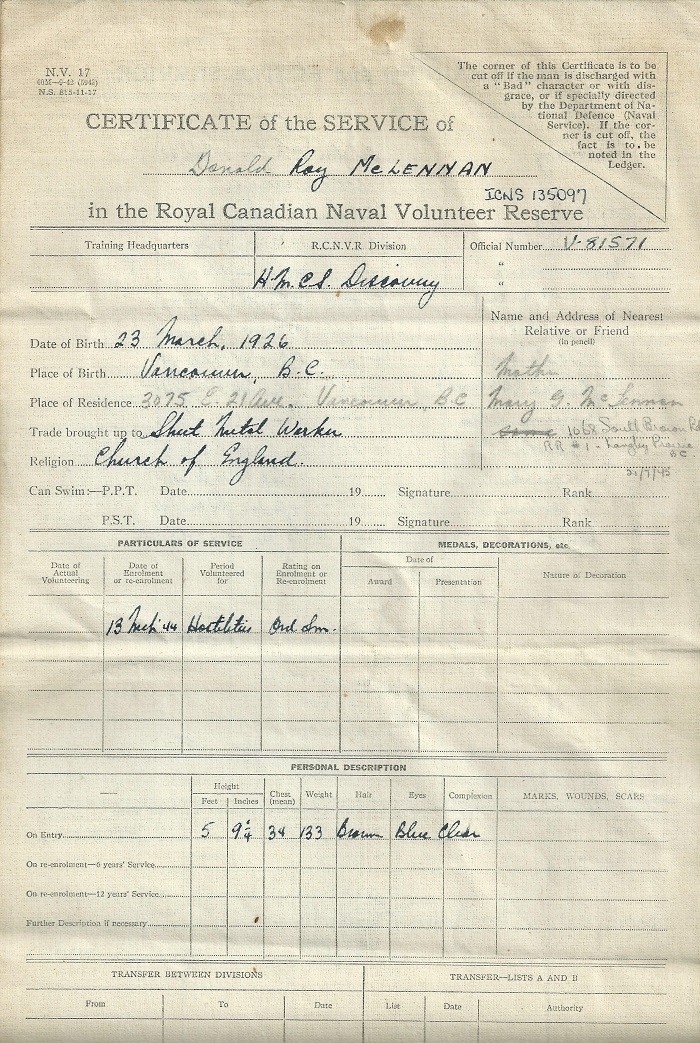 N.V. 17
40M—9-42 (5942)
N.S. 815-11-17
The corner of this Certificate is to be
cut off if the man is discharged with
a "Bad" character or with dis-
grace, or if specially directed
by the Department of Na-
tional Defence (Naval
Service). If the cor-
ner is cut off, the
fact is to be
noted in the
Ledger.
CERTIFICATE of the SERVICE of
Donald Roy McLENNAN
ICNS 135097
in the Royal Canadian Naval Volunteer Reserve
Training Headquarters R.C.N.V.R. Division Official Number V-81571
"
H.M.C.S. Discovery "
Name and Address of Nearest
Relative or Friend
(in pencil)
Date of Birth 23 March, 1926
Place of Birth Vancouver, B.C. Mother
Place of Residence 3075 E 21 Ave. Vancouver, B.C Mary G. McLennan
Trade brought up to Sheet Metal Worker same 1068 South
RR #1 - Langley Prairie
BC.
Religion Church of England.
/7/45
Can Swim:—P.P.T. Date 19 Signature Rank
P.S.T. Date 19 Signature Rank
PARTICULARS OF SERVICE MEDALS, DECORATIONS, etc.
Date of Actual Volunteering Date of Enrolment or re-enrolment Period Volunteered for Rating on Enrolment or Re-enrolment Date of Award Presentation Nature of Decoration
13 Mch '44 Hostilities Ord Smn.
PERSONAL DESCRIPTION
Height Feet Inches Chest (mean) Weight Hair Eyes Complexion MARKS, WOUNDS, SCARS
On Entry 5 9¼ 34 133 Brown Blue Clear
On re-enrolment—6 years' Service
On re-enrolment—12 years' Service
Further Description if necessary
TRANSFER BETWEEN DIVISIONS TRANSFER—LISTS A AND B
From To Date List Date Authority